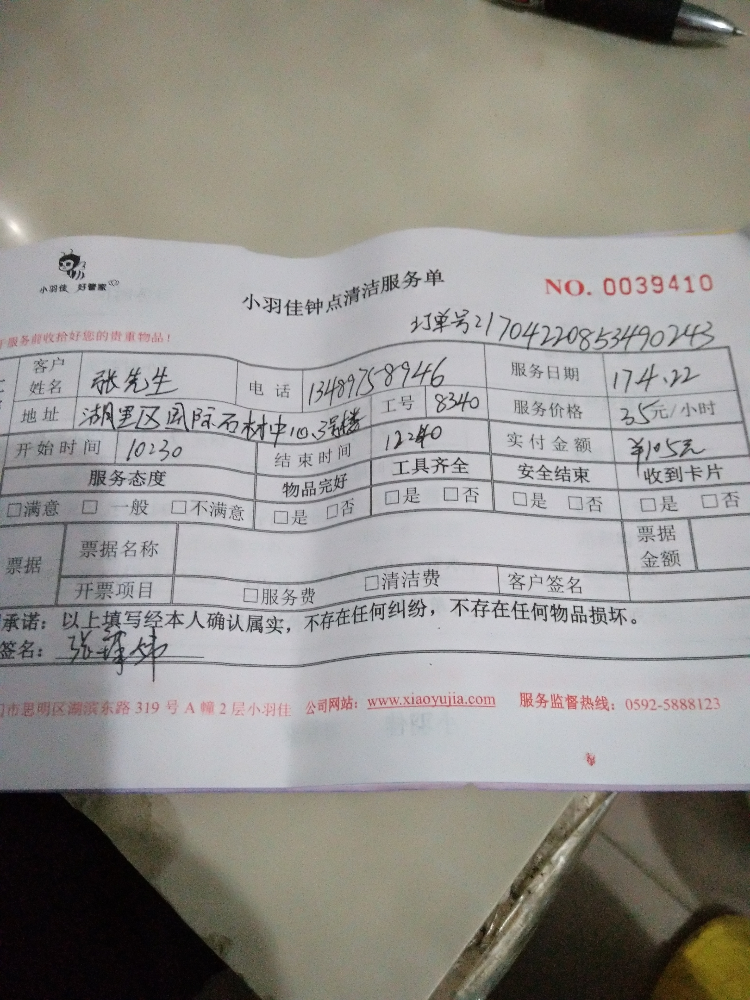 小羽佳 好管家
小羽佳钟点清洁服务单
NO. 0039410
服务前收拾好您的贵重物品!
订单号21704220853490243
客户姓名 张先生 电话 13489758946 服务日期 17.4.22
地址 湖里区国际石材中心3号楼 工号 8340 服务价格 35元/小时
开始时间 10:30 结束时间 12:40 实付金额 ¥105元
服务态度 物品完好 工具齐全 安全结束 收到卡片
□满意 □一般 □不满意 □是 □否 □是 □否 □是 □否 □是 □否
票据 票据名称 票据金额
开票项目 □服务费 □清洁费 客户签名
承诺：以上填写经本人确认属实，不存在任何纠纷，不存在任何物品损坏。
签名：
市思明区湖滨东路 319 号 A 幢 2 层小羽佳 公司网站：www.xiaoyujia.com 服务监督热线：0592-5888123